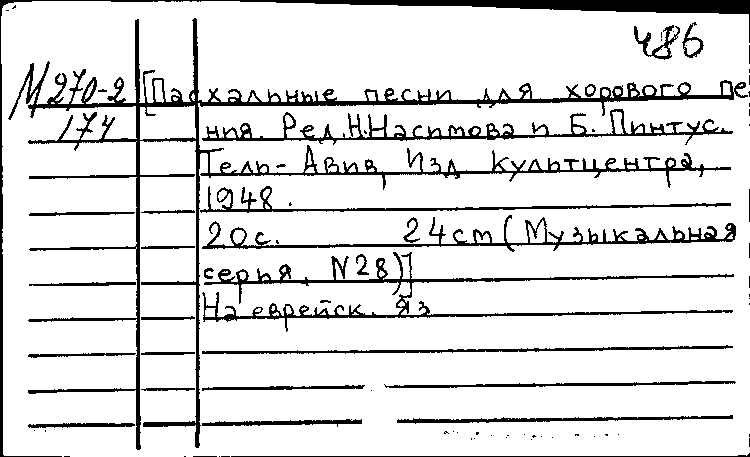 486
М 270-2 [Пасхальные песни для хорового пе
174 ния. Ред. Н. Насимова и Б. Пинтус.
Тель-Авив, Изд. Культцентра,
1948.
20с. 24cm (Музыкальная
серья, N28)]
На еврейск. яз